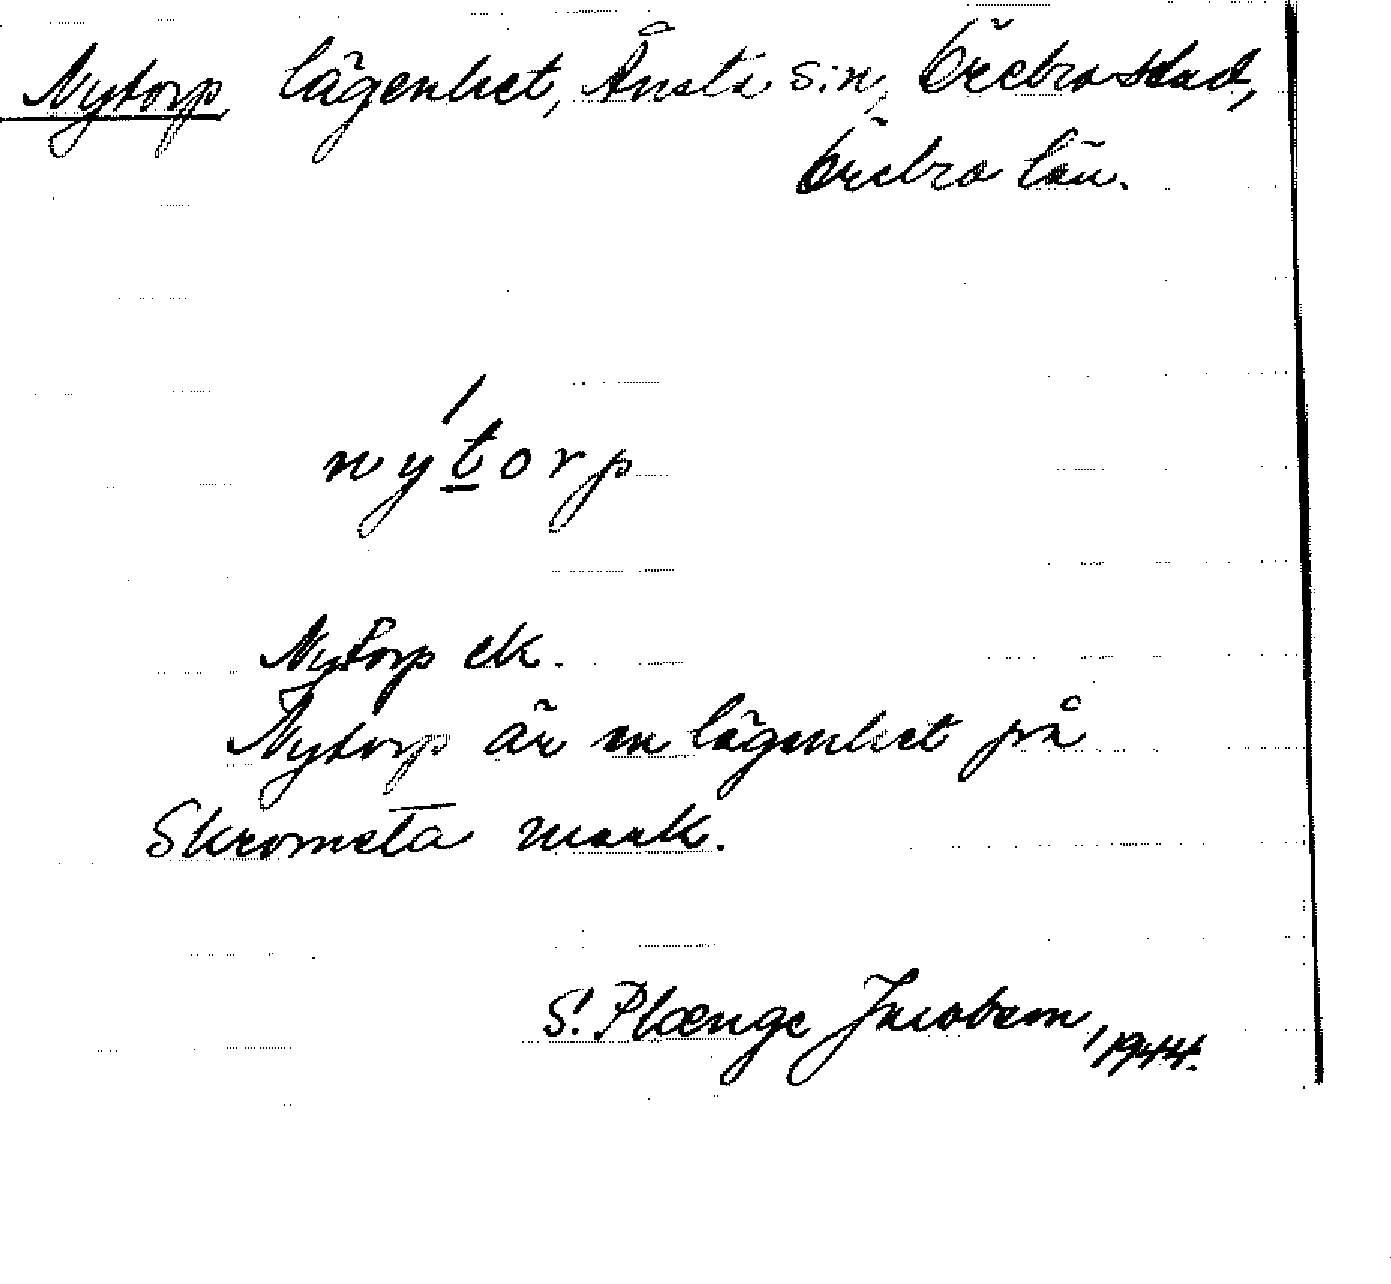 Nytorp lägenhet, Ånsta s:n, Örebro stad,
Örebro län.
nýtorp
Nytorp ek.
Nytorp är en lägenhet på
Skromsta mark.
S. Plænge Jacobsen, 1944.